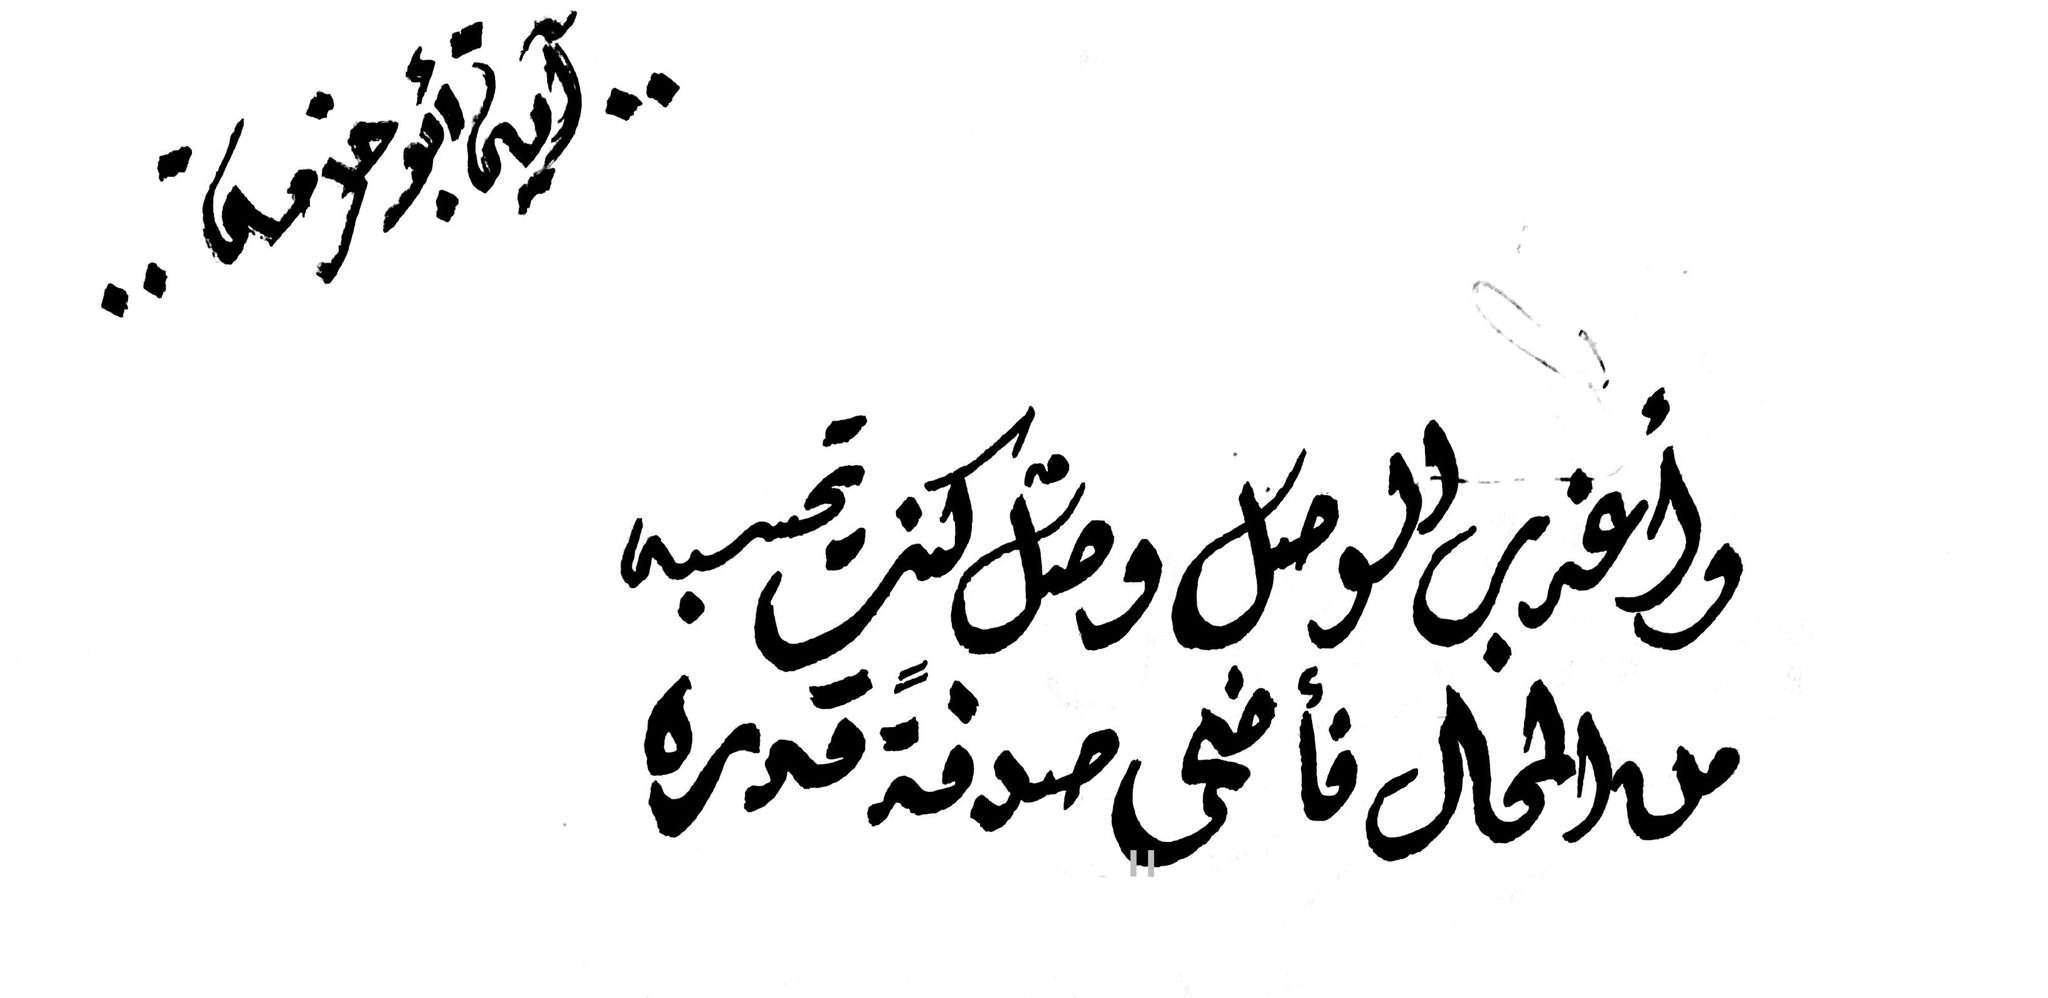 آية أبو خزمة
وأعذب الوصل وصلٌ كنت تحسبه
من المحال فأضحى صدفةً قدره